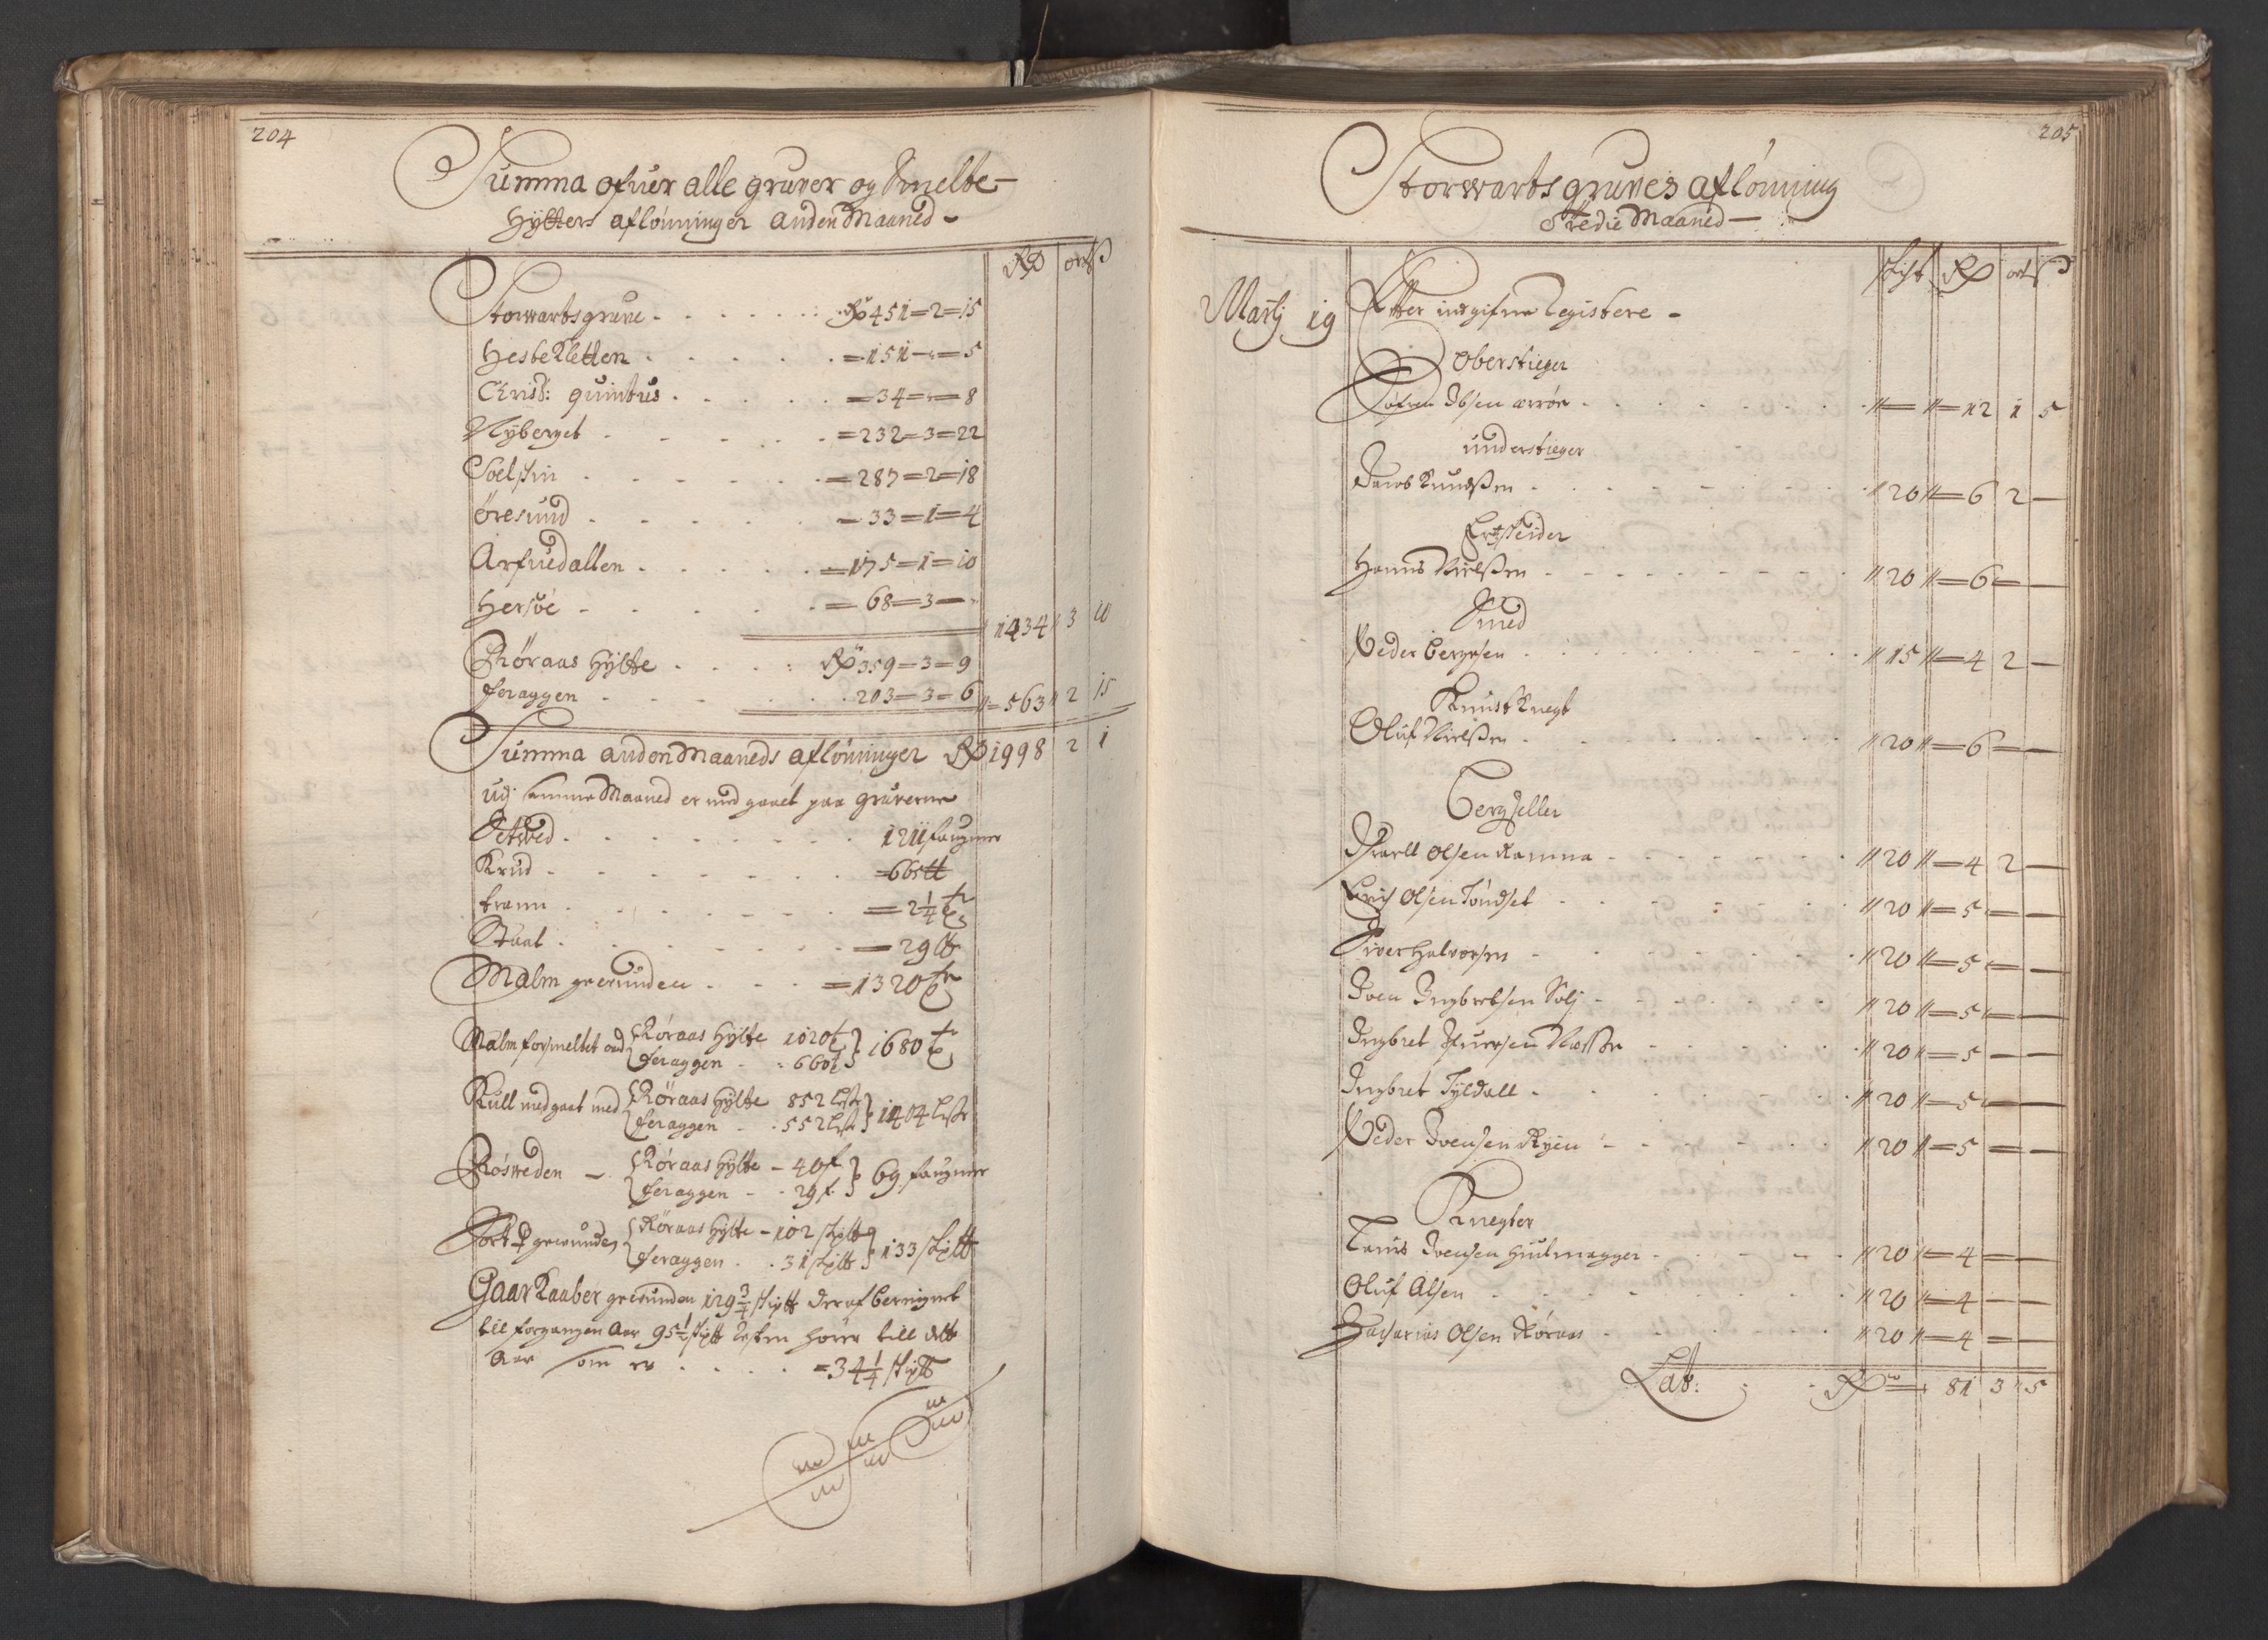 204
Summa ofuer alle gruver og Smelte-
Hÿtters aflønninger anden Maaned -
RD ort ß
Storwartsgruve . . . RD 451=2=15
Hestekletten . . . =151=„=5
Christ: quintus . . . =34=„=8
Nÿberget . . . =232=3=22
Soelskin . . . =287=2=18
øresund . . . =33=1=4
Arfuedallen . . . =175=1=10
Hersøe . . . =68=3=„
1434 3 10
Røraas Hÿtte . . . RD 359=3=9
feraggen . . . 203=3=6 563 2 15
Summa anden Maaneds aflønninger RD 1998 2 1
udj samme Maaned er med gaaet paa gruverne
Setwed . . . 1211 faugner
Krud . . . =66
trann . . . =2 1/4 tr
Staal . . . =29 ℔
Malm gewunden . . . =1320 tr
Malm forsmeltet ved Røraas Hÿtte 1020 t
feraggen . . 660 t 1680 tr
Kull medgaaet med Røraas Hÿtte 852 lester
feraggen . . 552 lester 1404 lester
Røsweden - Røraas Hÿtte - 40 f
feraggen - - 29 f. 69 faugner
Sort ♀ gewunden Røraas Hÿtte - 102 skp℔
feraggen . . 31 skp℔ 133 skp℔
Gaar Kaaber gewunden 129 3/4 skp℔ deraf beregnet
til forgangen Aar 95 1/2 skp℔ resten hører till dette
Aar som er . . . =34 1/4 skp℔
205
Storwarts gruves aflønning
Tredie Maaned -
skift RD ort ß
Martÿ 19 Efter indgifne Registere -
Oberstieger
Ibsen ærrøe . . . 12 1 5
understieger
Jacob Knudßen . . . 20 6 2 -
Ertzscider
Hanns Nielßen . . . 20 6 - -
Smed
Peder Bergesen . . . 15 4 2 -
Kunst Knegt
Oluf Nielßen . . . 20 6 - -
Bergseller
Israell Olsen Ramna . . . 20 4 2 -
Erich Olsen Tøndset . . . 20 5 - -
Siver Halvorsen . . . 20 5 - -
Iven Ingbretsen Solj . . . 20 5 - -
Ingbret Næsße . . . 20 5 - -
Ingbret Tÿldall . . . 20 5 - -
Peder Ivensen Rÿen . . . 20 5 - -
Knegter
Lauris Ivensen Hiulmagger . . . 20 4 - -
Oluf Olsen . . . 20 4 - -
Zacharias Olsen Røraas . . . 20 4 - -
Lat: RD 81 3 5